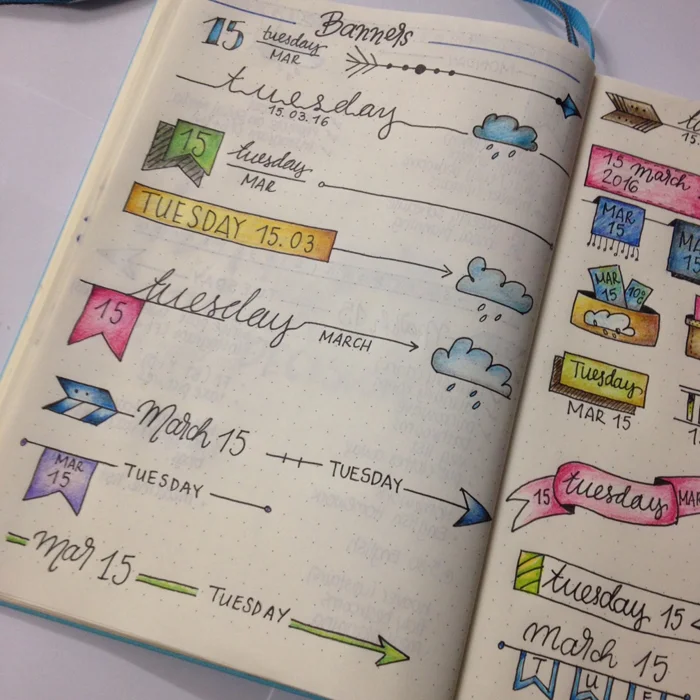 Banners
15 tuesday
MAR
tuesday
15.03.16
15 tuesday
MAR
TUESDAY 15.03
15 tuesday MARCH
March 15 TUESDAY
MAR
15 TUESDAY
Mar 15 TUESDAY
15.
15 march
2016
MAR
15
MAR
15
MAR
15 10°
Tuesday
MAR 15
15 tuesday MAR
tuesday 15
march 15
T U E